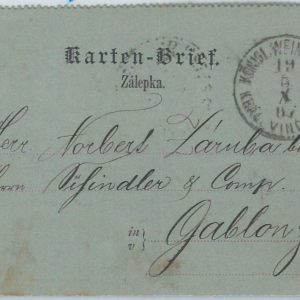 Karten-Brief.
Zálepka.
KÖNIGL. WEIN
19
5
X
97
KRÁL. VINO
Herr Norbert Záruba b
Herren Schindler & Comp.
in
v } Gablonz